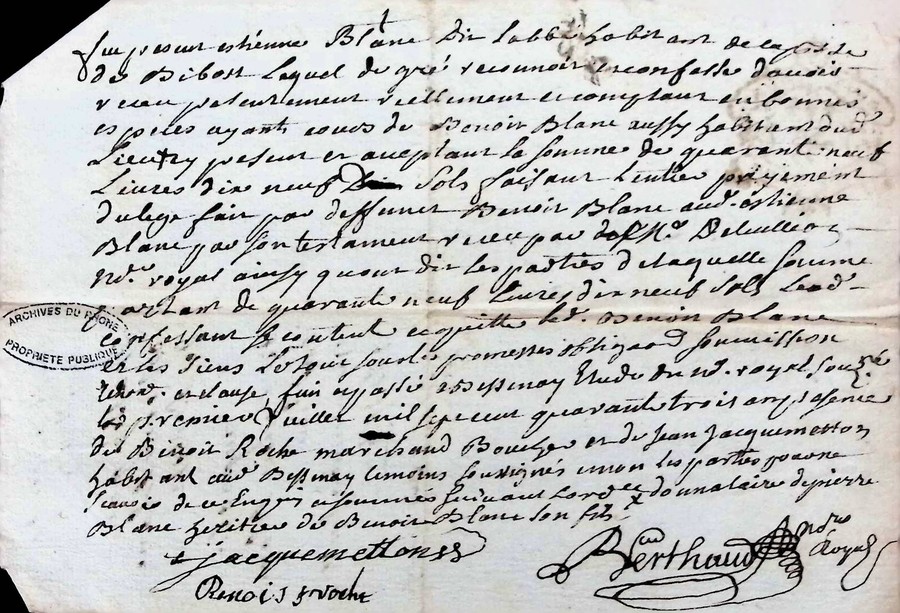 fut present estienne Blanc dit Labbé habitant de la p^sse
de Bibost Lequel de gré reconnoit et confesse d'avoir
receu presentement reellement et comptant en bonnes
especes ayants cours de Benoit Blanc aussy habitant dud^t
Lieu Icy present et acceptant la somme de quarante neuf
Livres dix neuf sols faisant L'entier payement
du legs fait par deffunct Benoit Blanc aud^t estienne
Blanc par son testament receu par M^e
No^re royal ainsy qu'ont dit les parties de laquelle somme
de quarante neuf Livres dix neuf sols Led^t
confessant se contente et quitte led^t Benoit Blanc
et les siens Le tout sous les promesses obligaōns soumission
renon^on et clause, fait et passé a Bessenay Etude du no^re royal souz^né
le premier Juillet mil sept cent quarante trois en presence
de Benoit Roche marchand Boucher et de Jean Jacquemetton
habitant aud^t Bessenay temoins soussignés et non les parties pour ne
scavoir de ce Enquis et sommés suivant Lord^ce x donnataire de pierre
Blanc heritier de Benoit Blanc son fils
jacquemetton
Berthaud
No^re Royal
Benois roche
ARCHIVES DU RHONE
PROPRIETE PUBLIQUE